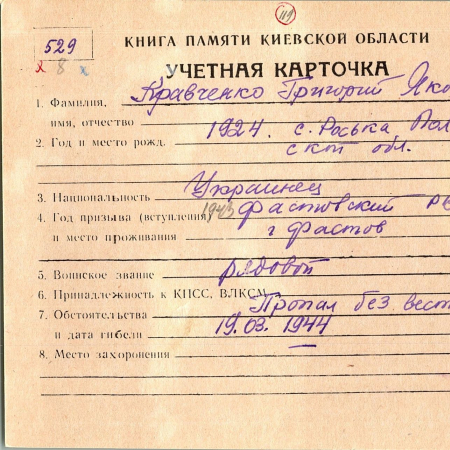 119
529
КНИГА ПАМЯТИ КИЕВСКОЙ ОБЛАСТИ
х 8 х
УЧЕТНАЯ КАРТОЧКА
1. Фамилия, Кравченко Григорий Яко
имя, отчество
2. Год и место рожд. 1924. с.
ской обл.
3. Национальность Украинец
4. Год призыва (вступления) 1943 Фастовский
и место проживания г Фастов
5. Воинское звание рядовой
6. Принадлежность к КПСС, ВЛКСМ
7. Обстоятельства Пропал без вест
и дата гибели 19.03. 1944
8. Место захоронения